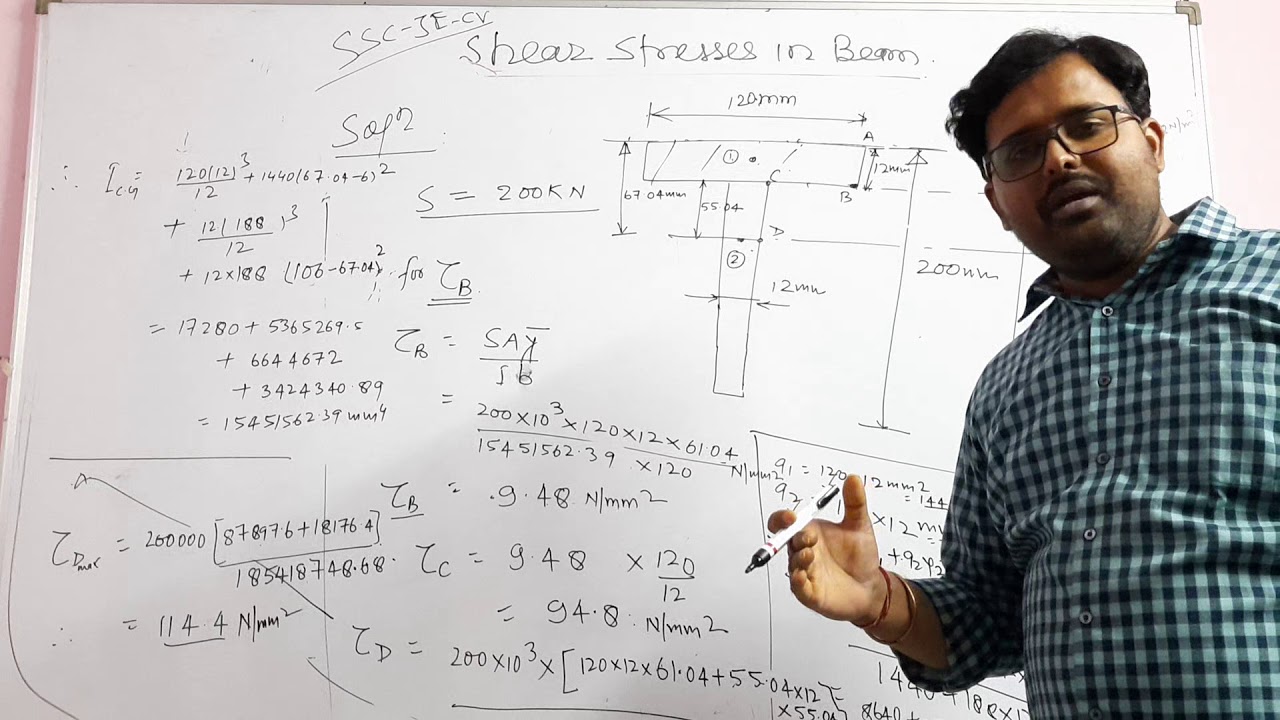 SSC-JE-CV
Shear Stresses in Beam.
Sol^n
S = 200KN
∴ I_C.G = 120(12)^3/12 + 1440(67.04-6)^2
+ 12(188)^3/12
+ 12×188 (106-67.04)^2
= 17280 + 5365269.5
+ 6644672
+ 3424340.89
= 15451562.39 mm^4
for τ_B
τ_B = SAȳ/Ib
= 200×10^3×120×12×61.04/15451562.39 ×120 N/mm^2
τ_B = 9.48 N/mm^2
τ_C = 9.48 × 120/12
= 94.8 N/mm^2
τ_D = 200×10^3×[120×12×61.04+55.04×12
×55.04
τ_Dmax = 200000[87897.6+18176.4]/185418748.68
∴ = 114.4 N/mm^2
120mm
A
①
12mm
67.04mm
C
B
55.04
D
②
200mm
12mm
N/m^2
a1 = 120 12mm^2
= 144
a2
×12 m
+ a2y2
8640+